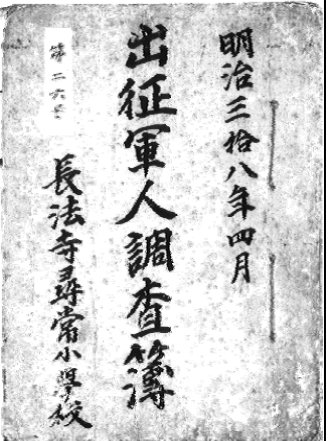 明治三拾八年四月
出征軍人調査簿
第二六号
長法寺尋常小學校